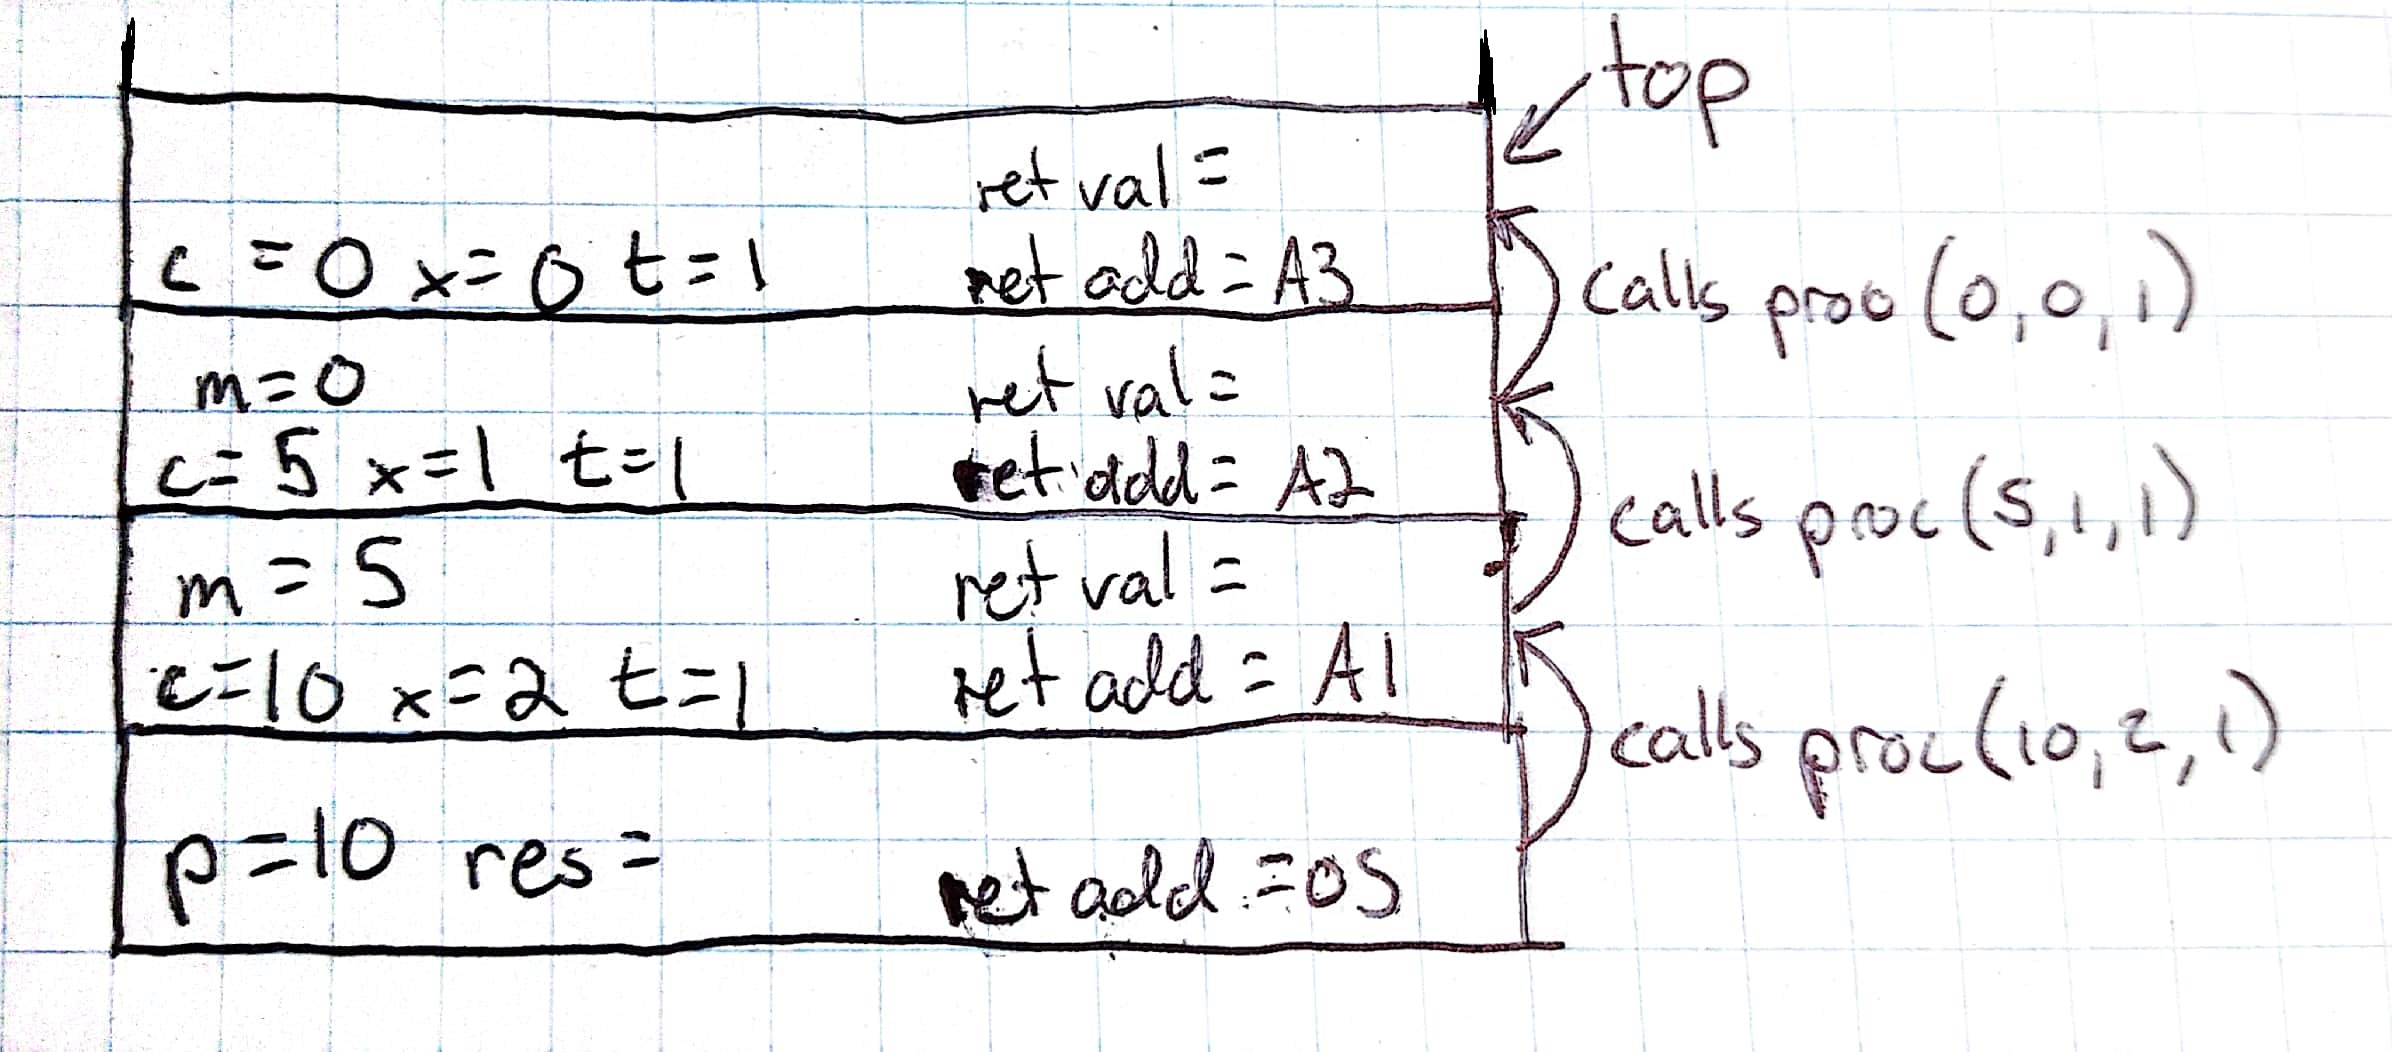 top
ret val =
c = 0 x = 0 t = 1 ret add = A3
calls proc (0, 0, 1)
m = 0 ret val =
c = 5 x = 1 t = 1 ret add = A2
calls proc (5, 1, 1)
m = 5 ret val =
c = 10 x = 2 t = 1 ret add = A1
calls proc (10, 2, 1)
p = 10 res = ret add = OS